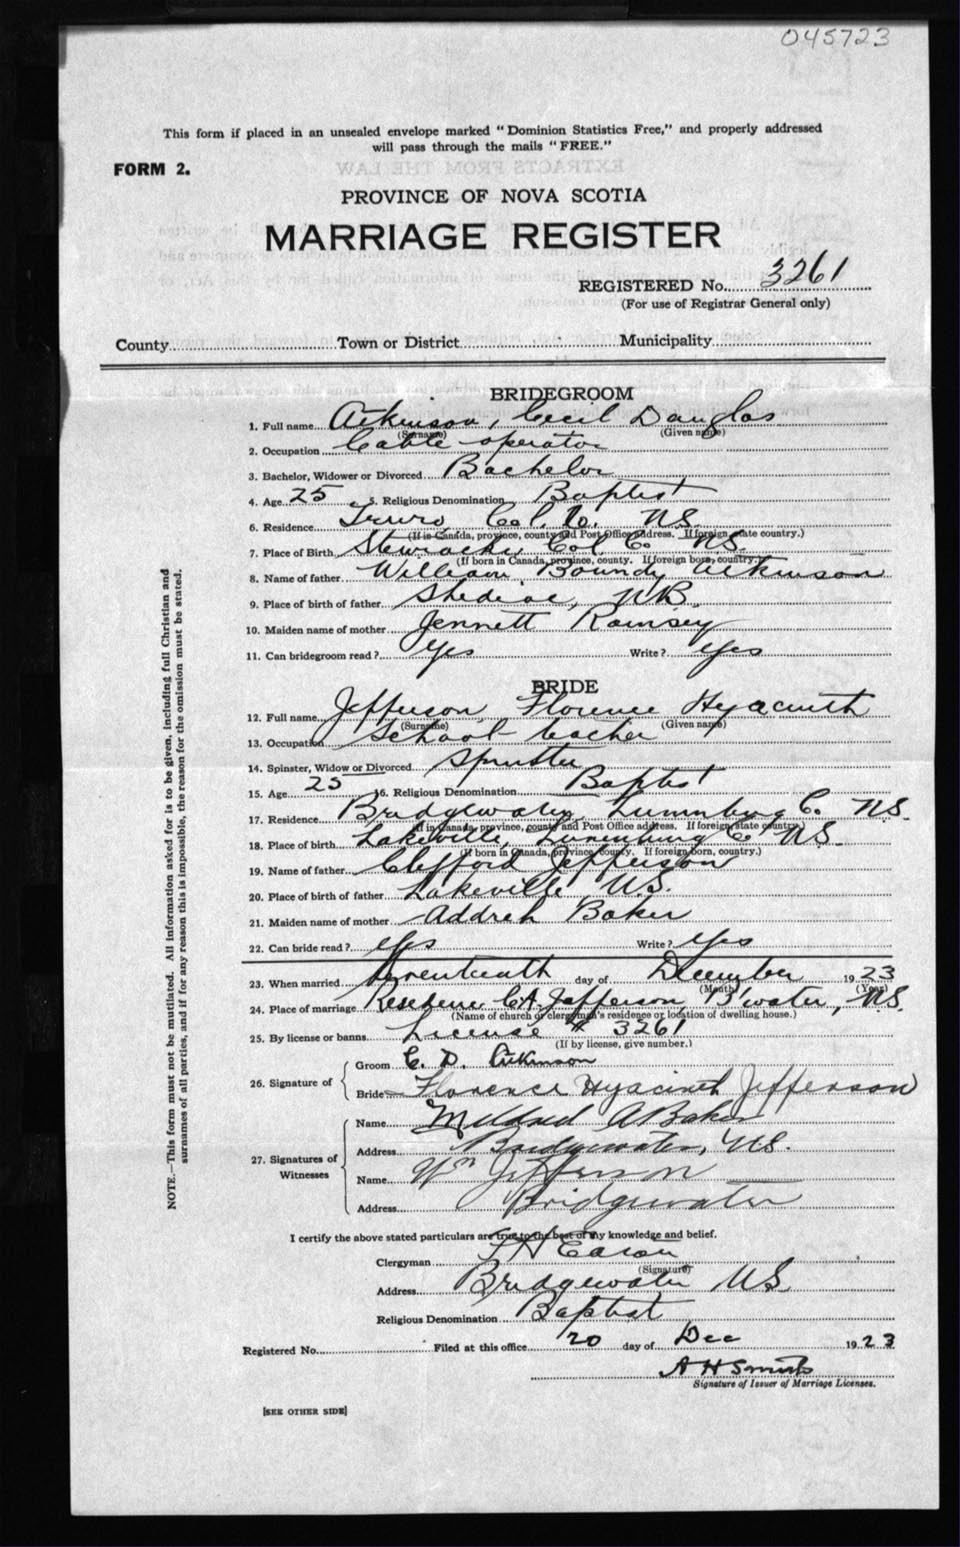 045723
This form if placed in an unsealed envelope marked "Dominion Statistics Free," and properly addressed
will pass through the mails "FREE."
FORM 2.
PROVINCE OF NOVA SCOTIA
MARRIAGE REGISTER
REGISTERED No. 3261
(For use of Registrar General only)
County Town or District Municipality
BRIDEGROOM
1. Full name Atkinson, Cecil Douglas
(Surname) (Given name)
2. Occupation Cable operator
3. Bachelor, Widower or Divorced Bachelor
4. Age 25 5. Religious Denomination Baptist
6. Residence Truro, Col. Co. N.S.
(If in Canada, province, county and Post Office address. If foreign state country.)
7. Place of Birth Stewiacke, Col. Co. N.S.
(If born in Canada, province, county. If foreign born, country.)
8. Name of father William Boundy Atkinson
9. Place of birth of father Shediac, N.B.
10. Maiden name of mother Jennett Ramsey
11. Can bridegroom read? Yes Write? Yes
BRIDE
12. Full name Jefferson, Florence Hyacinth
(Surname) (Given name)
13. Occupation School teacher
14. Spinster, Widow or Divorced Spinster
15. Age 25 16. Religious Denomination Baptist
17. Residence Bridgewater, Lunenburg C. N.S.
(If in Canada, province, county and Post Office address. If foreign state country.)
18. Place of birth Lakeville, Lunenburg C N.S.
(If born in Canada, province, county. If foreign born, country.)
19. Name of father Clifford Jefferson
20. Place of birth of father Lakeville N.S.
21. Maiden name of mother Baker
22. Can bride read? Yes Write? Yes
23. When married day of December 1923
(Month) (Year)
24. Place of marriage Residence C.A. Jefferson, B'water, N.S.
(Name of church or clergyman's residence or location of dwelling house.)
25. By license or banns License # 3261
(If by license, give number.)
26. Signature of
Groom C. D. Atkinson
Bride Florence Hyacinth Jefferson
27. Signatures of Witnesses
Name Mildred A Baker
Address Bridgewater, N.S.
Name Wm Jefferson
Address Bridgewater
I certify the above stated particulars are true to the best of my knowledge and belief.
Clergyman
(Signature)
Address Bridgewater N.S.
Religious Denomination Baptist
Registered No. Filed at this office 20 day of Dec 1923
A H Smith
Signature of Issuer of Marriage Licenses.
[SEE OTHER SIDE]
NOTE.—This form must not be mutilated. All information asked for is to be given, including full Christian and
surnames of all parties, and if for any reason this is impossible, the reason for the omission must be stated.